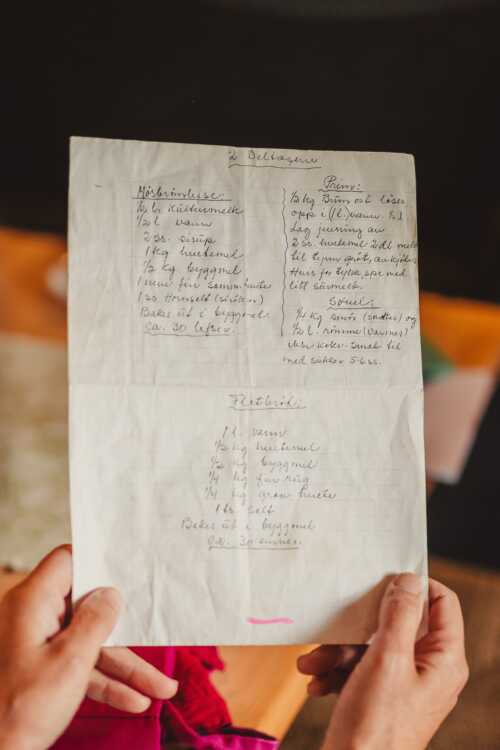 2 Deltagere
Mösbrömlefse:
1/2 l. Kulturmelk
1/2 l vann
2 ss. sirup
1 kg hvetemel
1/2 kg byggmel
1 ss Hornsalt
Bakes ut i byggmel
Ca. 30 lefser.
Prim:
1/2 kg Brun ost löses
opp i 1 (l.) vann.
Lag jevning av
2 ss. hvetemel 2 dl melk
til tynn gröt, avkjöles
Hvis for tykk spe med
litt surmelk.
1/4 kg smör (smeltes) og
1/2 l. römme (varmes)
smak til
med sukker 5-6 ss.
Flatbröd:
1 l. vann
1/2 kg hvetemel
1/2 kg byggmel
1/4 kg fin rug
1/4 kg grov hvete
1 ts. salt
Bakes ut i byggmel
Ca. 30 emner.